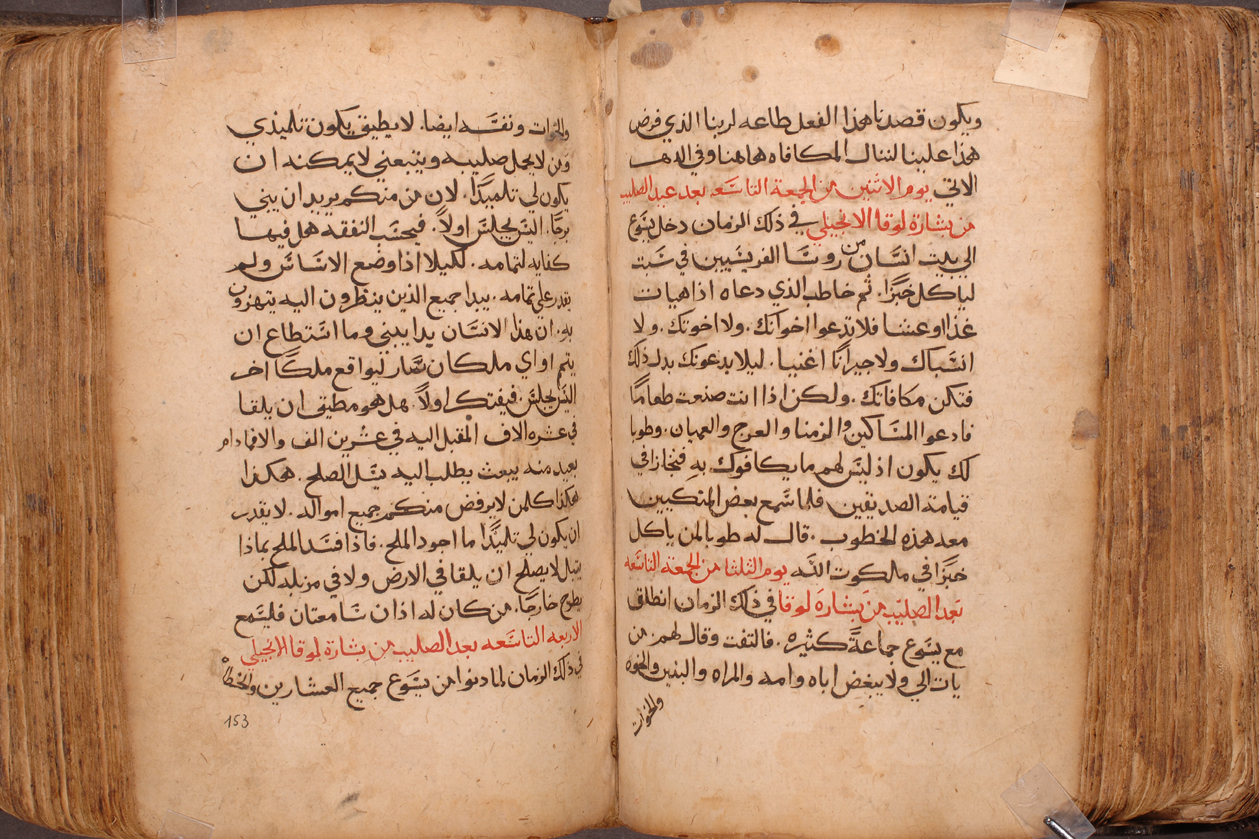 ويكون قصدنا هذا الفعل طاعه لربنا الذي فرض
هذا علينا لننال المكافاه هاهنا وفي الدهر
الاتي يوم الاثنين من الجمعة التاسعه بعد عيد الصليب
من بشارة لوقا الانجيلي في ذلك الزمان دخل يسوع
الي بيت انسان من روسا الفريسيين في سبت
لياكل خبزا. ثم خاطب الذي دعاه اذا هيات
غذا اوعشا فلا تدعوا اخوانك. ولا اخوتك. ولا
انسباك ولا جيرانا اغنيا. ليلا يدعونك بدل ذلك
فتكن مكافاتك. ولكن اذا انت صنعت طعاما
فادعوا المساكين والزمنا والعرج والعميان. وطوبا
لك يكون اذ ليس لهم ما يكافوك به فتجازا في
قيامة الصديقين فلما سمع بعض المتكيين
معه هذه الخطوب. قال له طوبا لمن ياكل
خبزا في ملكوت الله يوم الثلثا من الجمعة التاسعه
بعد الصليب من بشارة لوقا في ذلك الزمان انطلق
مع يسوع جماعة كثيره. فالتفت وقال لهم: من
يات الي ولا يبغض اباه وامه والمراه والبنين والاخوه
والاخوات
والاخوات ونفسه ايضا. لا يطيق يكون تلميذي
ومن لا يحمل صليبه ويتبعني لا يمكنه ان
يكون لي تلميذا. لان من منكم يريد ان يبني
برجا. اليس يجلس اولا. فيحسب النفقه هل فيها
كفايه لتمامه. لكيلا اذا وضع الاساس ولم
يقدر علي تمامه. يبدا جميع الذين ينظرون اليه يتهزون
به. ان هذا الانسان بدا يبني وما استطاع ان
يتم او اي ملك ان سار ليواقع ملكا اخر
اليس يجلس فيفتكر اولا. هل هو مطيق ان يلقا
في عشره الاف المقبل اليه في عشرين الف والا فما دام
بعيد منه يبعث يطلب اليه يسل الصلح. هكذا
هكذا كلمن لا يرفض منكم جميع امواله. لا يقدر
ان يكون لي تلميذا ما اجود الملح. فاذا فسد الملح بماذا
يتبل لا يصلح ان يلقا في الارض ولا في مزبله لكن
يطرح خارجا. من كان له اذان سامعتان فليسمع
الاربعه التاسعه بعد الصليب من بشارة لوقا الانجيلي
في ذلك الزمان لما دنوا من يسوع جميع العشارين والخطاه
153